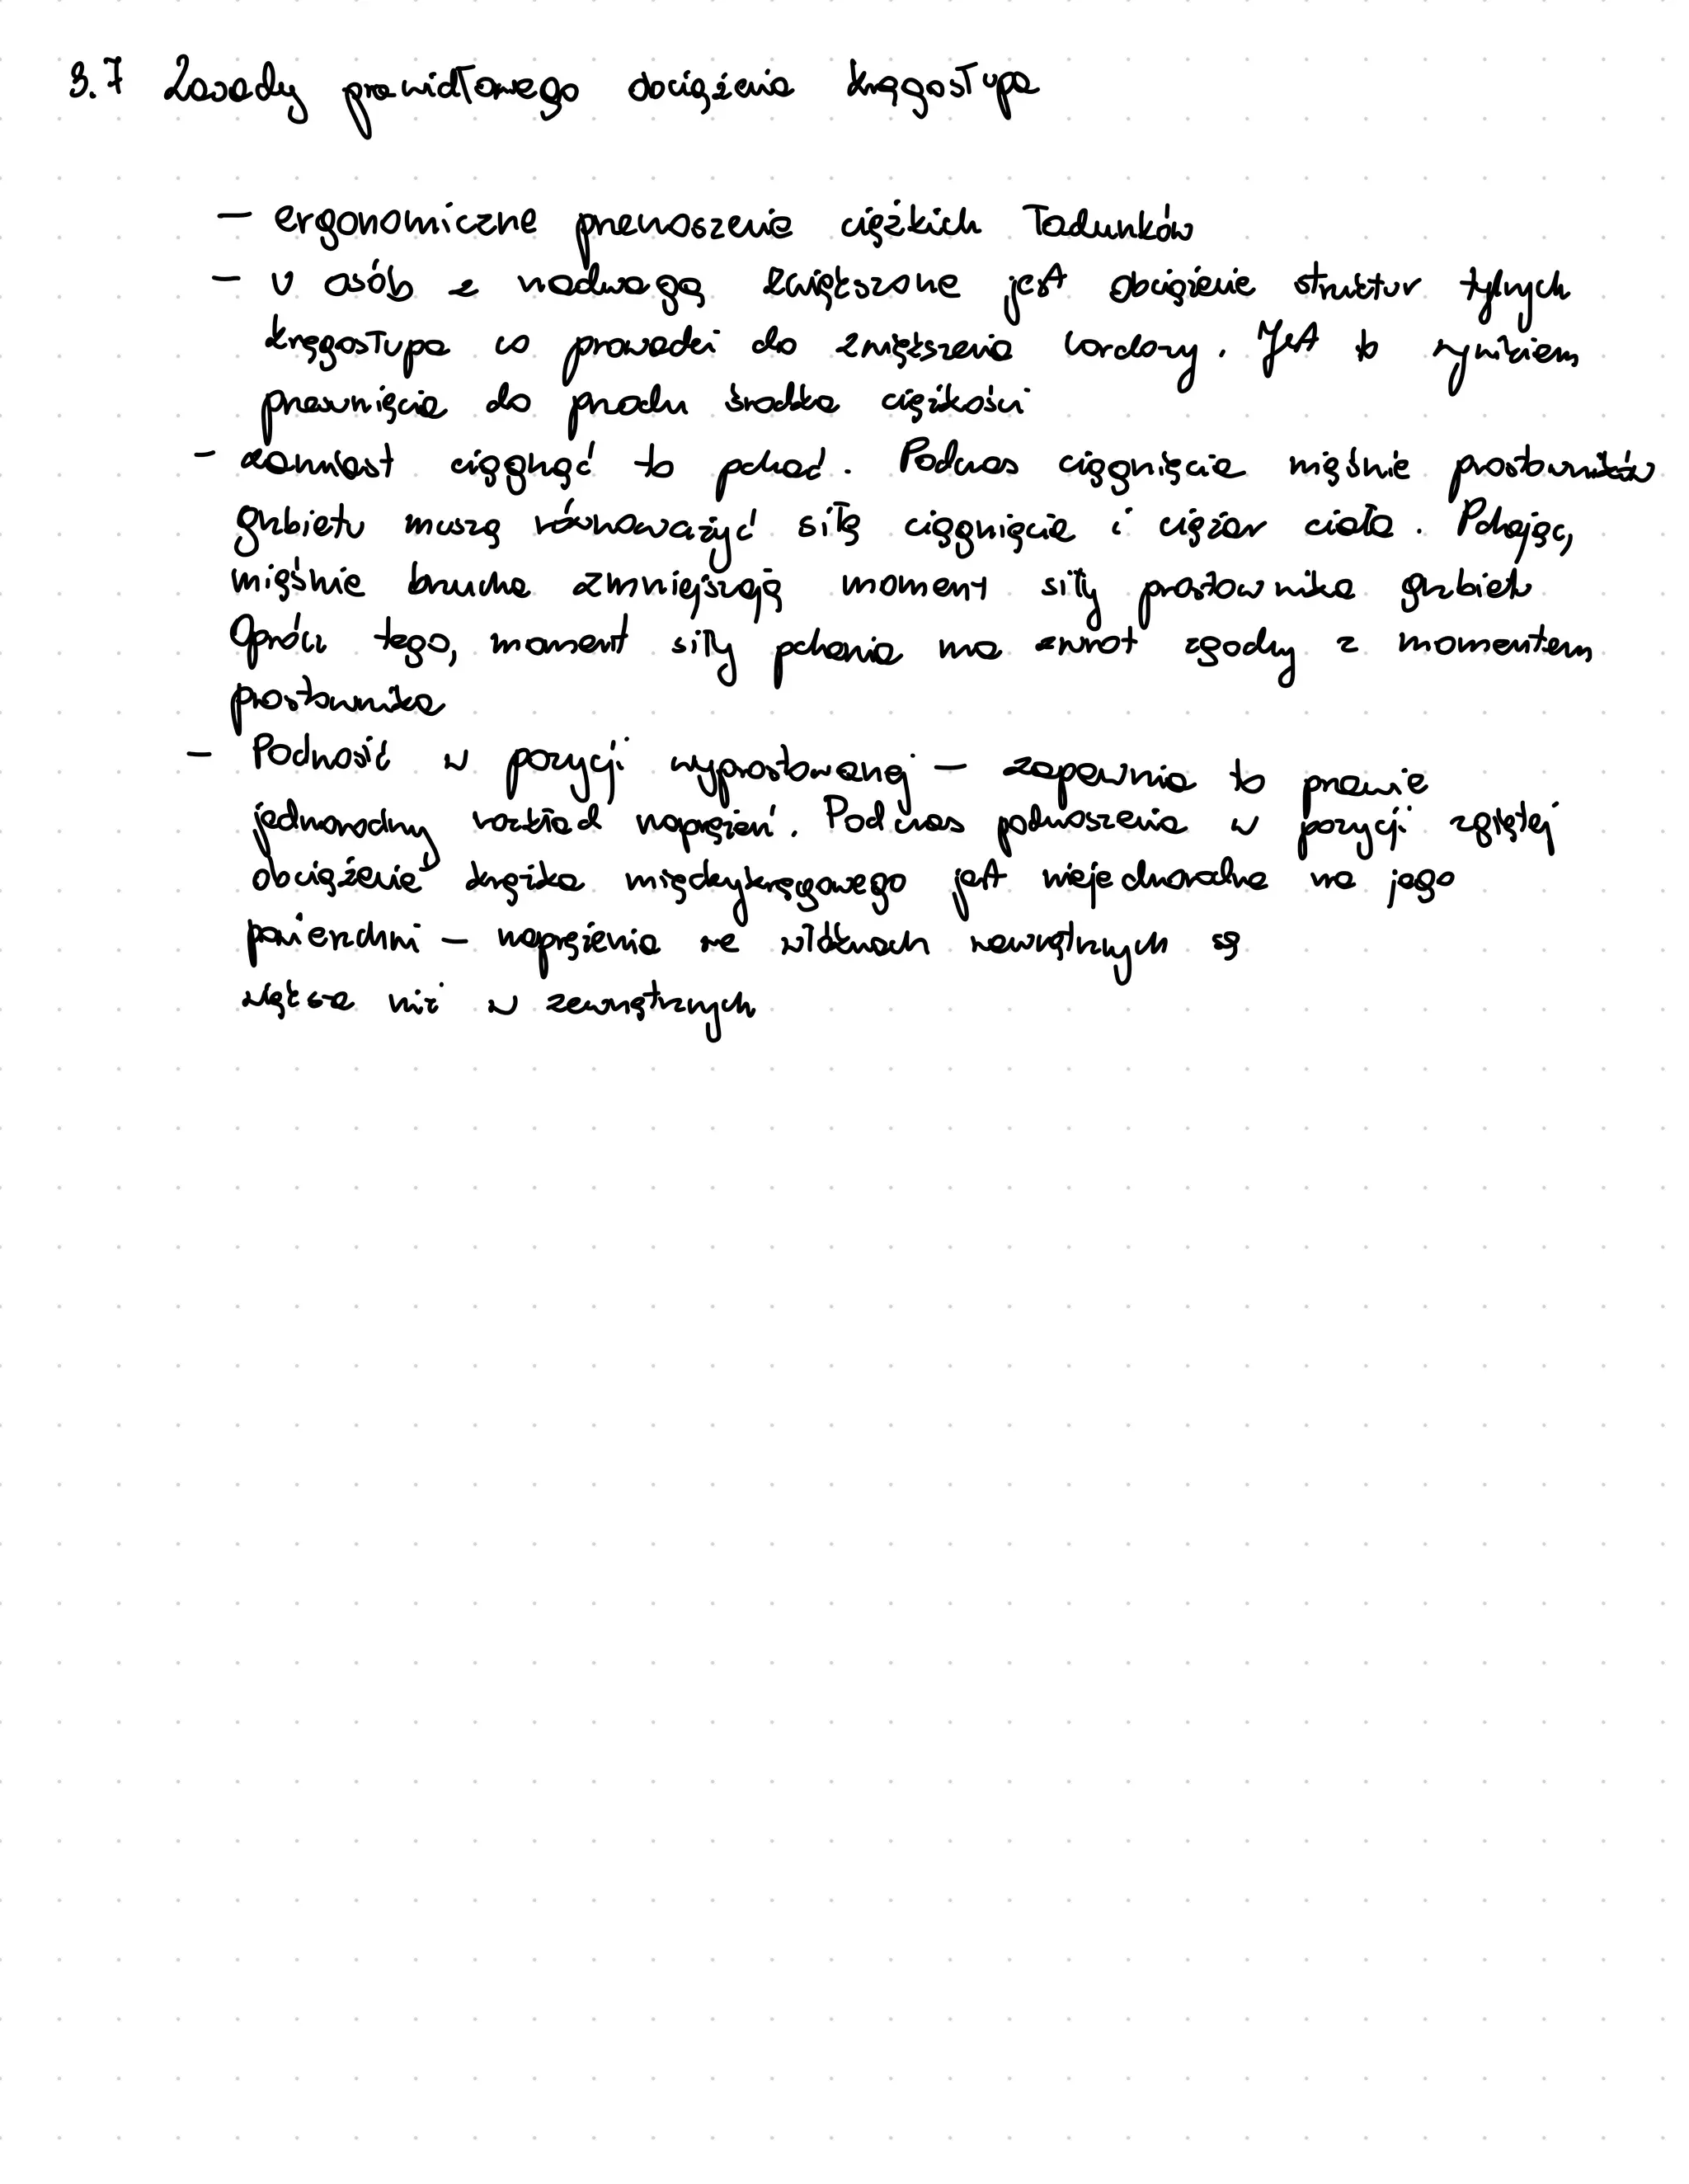 3.7 Zasady prawidłowego dociążenia kręgosłupa
– ergonomiczne przenoszenie ciężkich ładunków
– U osób z nadwagą zwiększone jest obciążenie struktur tylnych
kręgosłupa co prowadzi do zwiększenia lordozy. Jest to wynikiem
przesunięcia do przodu środka ciężkości
– zamiast ciągnąć to pchać. Podczas ciągnięcia mięśnie prostowników
grzbietu muszą równoważyć siłę ciągnięcia i ciężar ciała. Pchając,
mięśnie brzucha zmniejszają moment siły prostownika grzbietu
Oprócz tego, moment siły pchania ma zwrot zgodny z momentem
prostownika
– Podnosić w pozycji wyprostowanej – zapewnia to prawie
jednorodny rozkład naprężeń. Podczas podnoszenia w pozycji zgiętej
obciążenie krążka międzykręgowego jest niejednorodne na jego
powierzchni – naprężenia we włóknach wewnętrznych są
większe niż w zewnętrznych